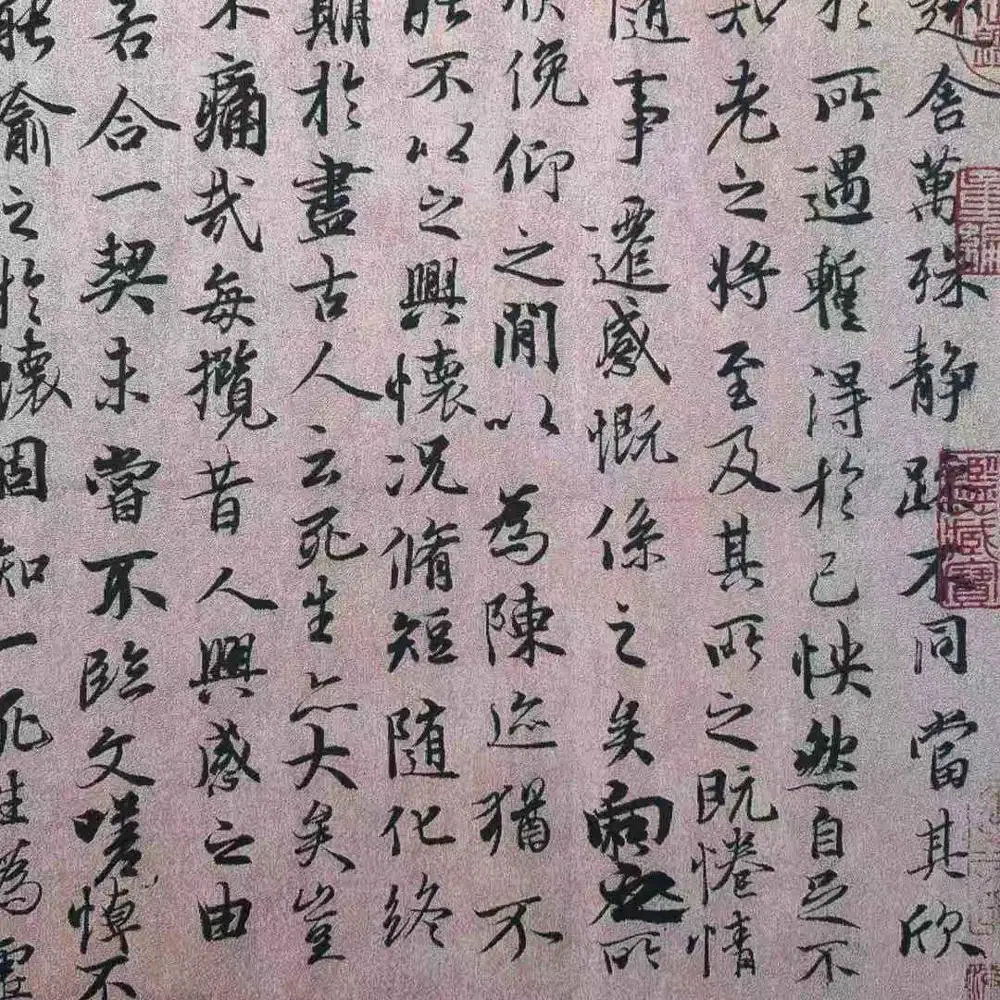 趣舍萬殊静躁不同當其欣
於所遇蹔得於己怏然自足不
知老之將至及其所之既惓情
隨事遷感慨係之矣向之所
欣俛仰之閒以為陳迹猶不
能不以之興懷況脩短隨化終
期於盡古人云死生亦大矣豈
不痛哉每攬昔人興感之由
若合一契未嘗不臨文嗟悼不
能喻之於懷固知一死生為虛